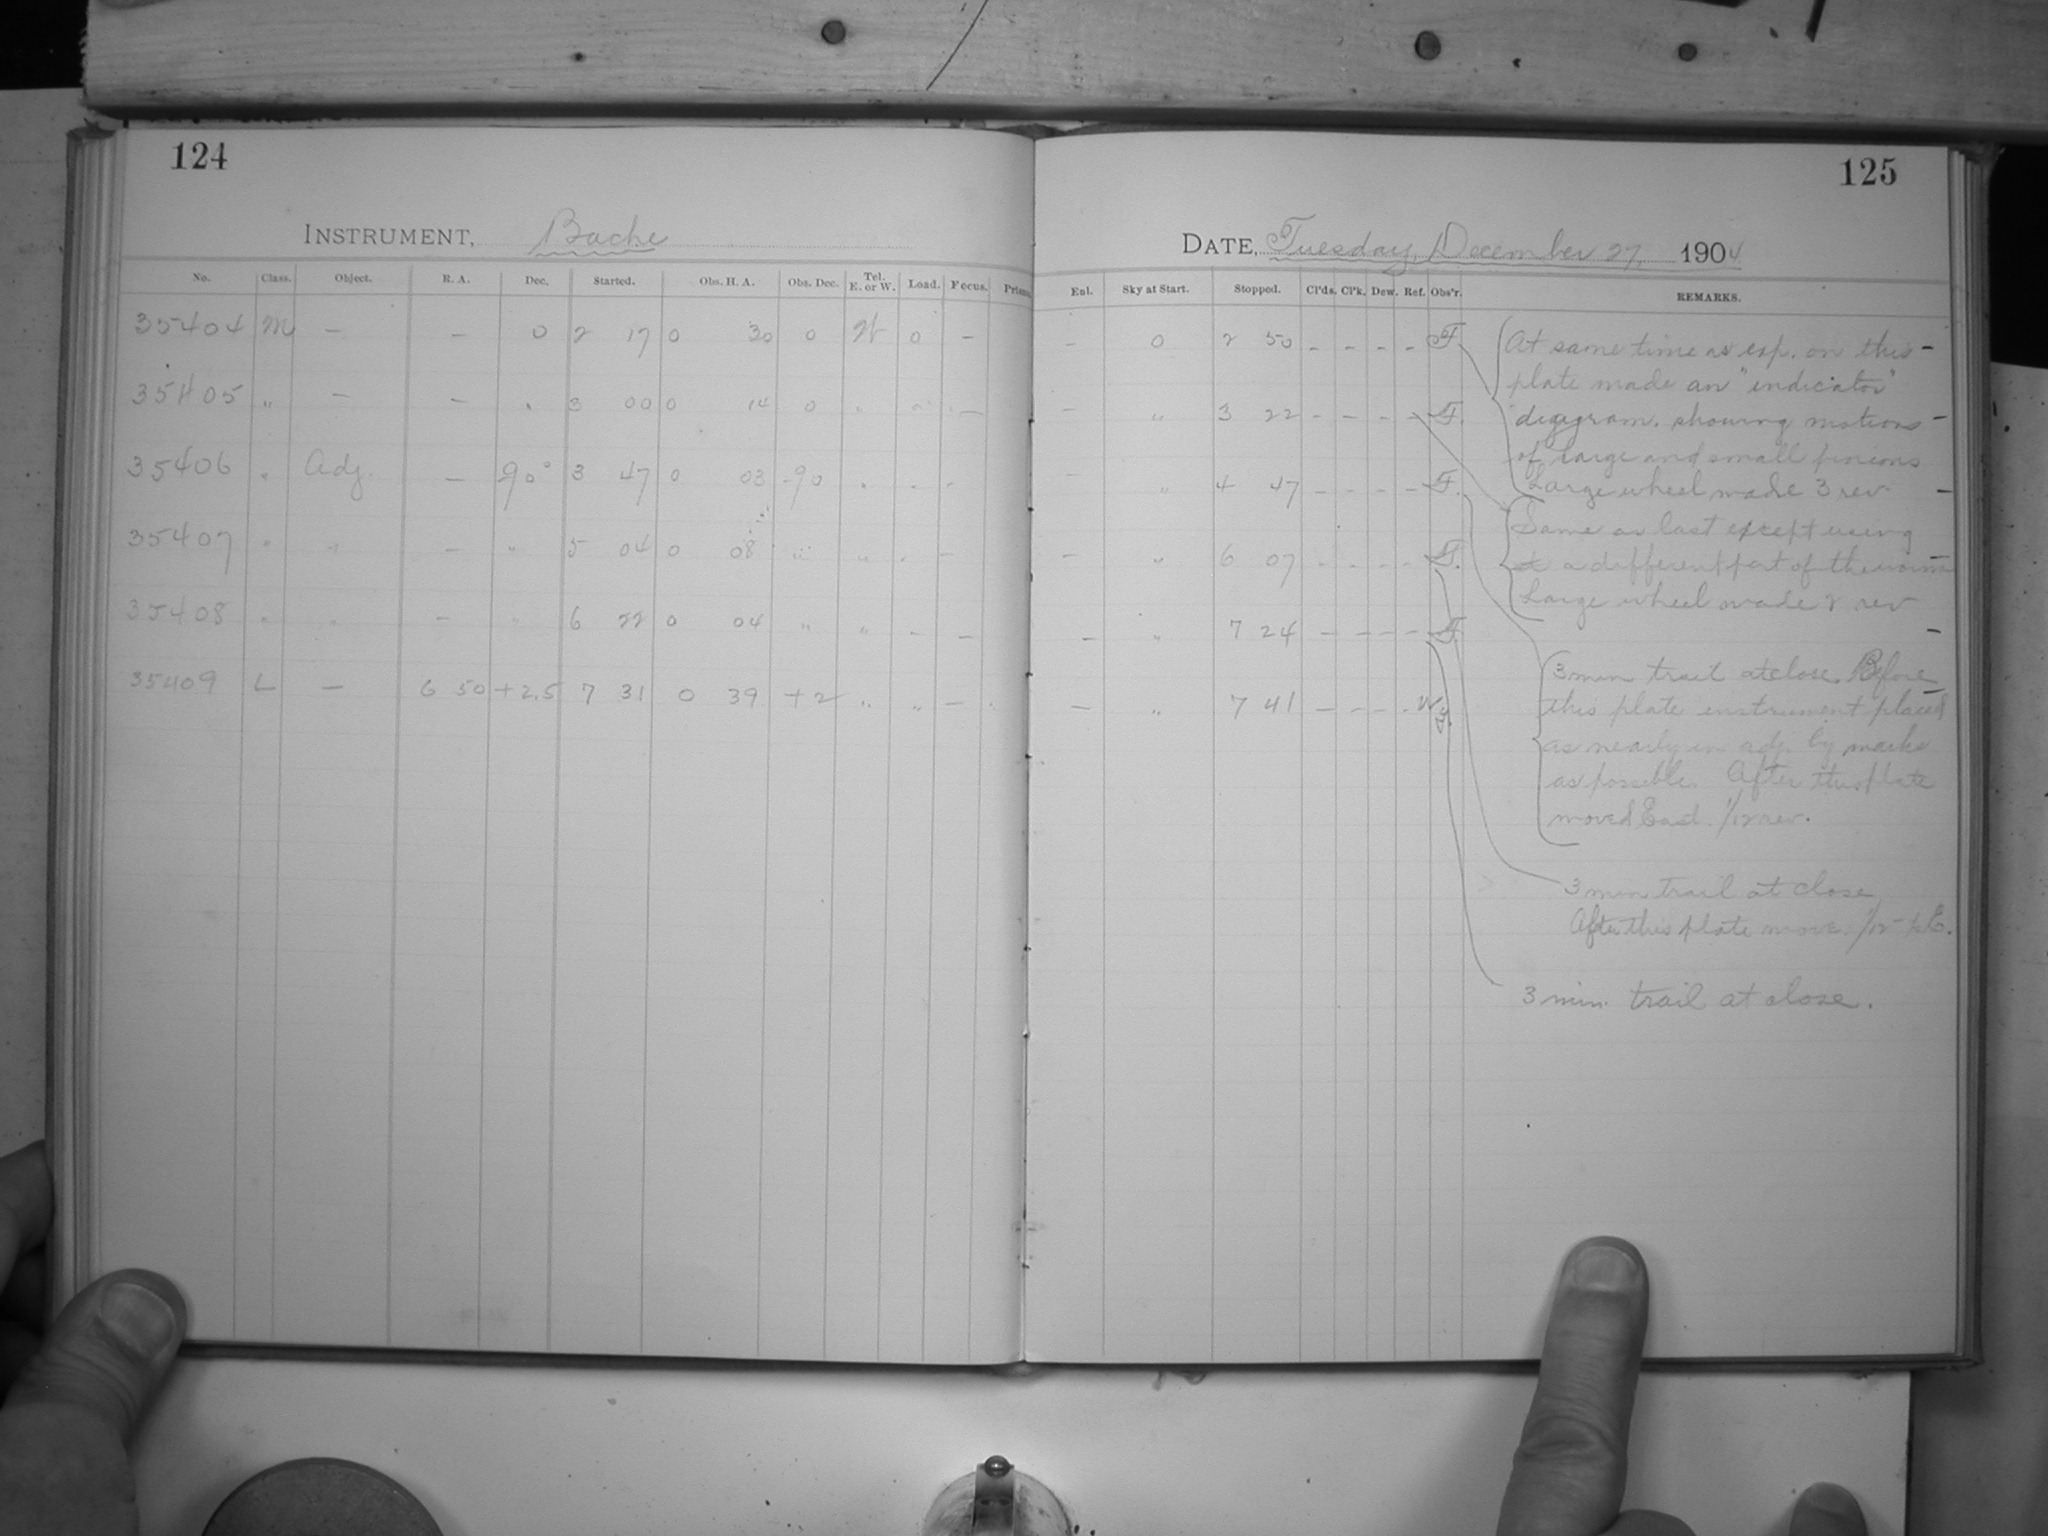 124
125
INSTRUMENT, Bache
DATE, Tuesday, December 27, 1904
No. Class. Object. R. A. Dec. Started. Obs. H. A. Obs. Dec. Tel. E. or W. Load. Focus. Prism. Enl. Sky at Start. Stopped. Cl'ds. Cl'k. Dew. Ref. Obs'r. REMARKS.
35404 M — — 0 2 17 0 30 0 W 0 — — 0 2 50 - - - - F.
35405 " — — " 3 00 0 14 0 " " — — " 3 22 - - - - F.
35406 " Adj. — 90° 3 47 0 03 -90 " " - - " 4 47 - - - - F.
35407 " " — " 5 04 0 08 " " " — — " 6 07 - - - - F.
35408 " " — " 6 22 0 04 " " " — — " 7 24 - - - - F.
35409 L — 6 50 +2.5 7 31 0 39 +2 " " — " — " 7 41 - - - - Wy.
At same time as exp. on this
plate made an "indicator"
diagram, showing motions
of large and small pinions
Large wheel made 3 rev.
Same as last except using
a different part of the worm
Large wheel made 2 rev
3 min trail at close. Before
this plate instrument placed
as nearly in adj. by marks
as possible. After this plate
moved East 1/12 rev.
3 min trail at close
After this plate move 1/12 E.
3 min. trail at close.